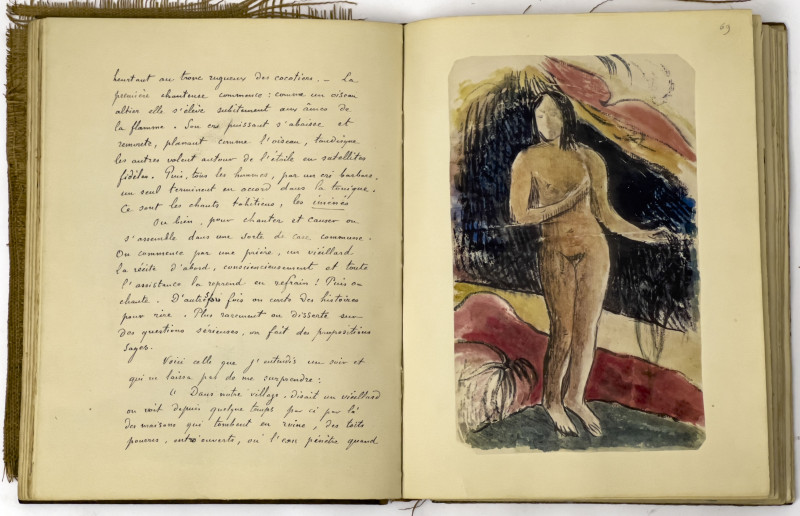 heurtant au tronc rugueux des cocotiers. — La
première chanteuse commence : comme un oiseau
altier elle s'élève subitement aux âmes de
la flamme. Son cri puissant s'abaisse et
remonte, planant comme l'oiseau, tandisque
les autres volent autour de l'étoile en satellites
fidèles. Puis, tous les hommes, par un cri barbare,
un seul terminent en accord dans la tonique.
Ce sont les chants tahitiens, les iménés
Ou bien, pour chanter et causer on
s'assemble dans une sorte de case commune.
On commence par une prière, un vieillard
la récite d'abord, consciencieusement et toute
l'assistance la reprend en refrain ! Puis on
chante. D'autres fois on conte des histoires
pour rire. Plus rarement on disserte sur
des questions sérieuses, on fait des propositions
sages.
Voici celle que j'entendis un soir et
qui ne laissa pas de me surprendre :
" Dans notre village, disait un vieillard
on voit depuis quelque temps par ci par là
des maisons qui tombent en ruine, des toits
pourris, entr'ouverts, où l'eau pénètre quand
69